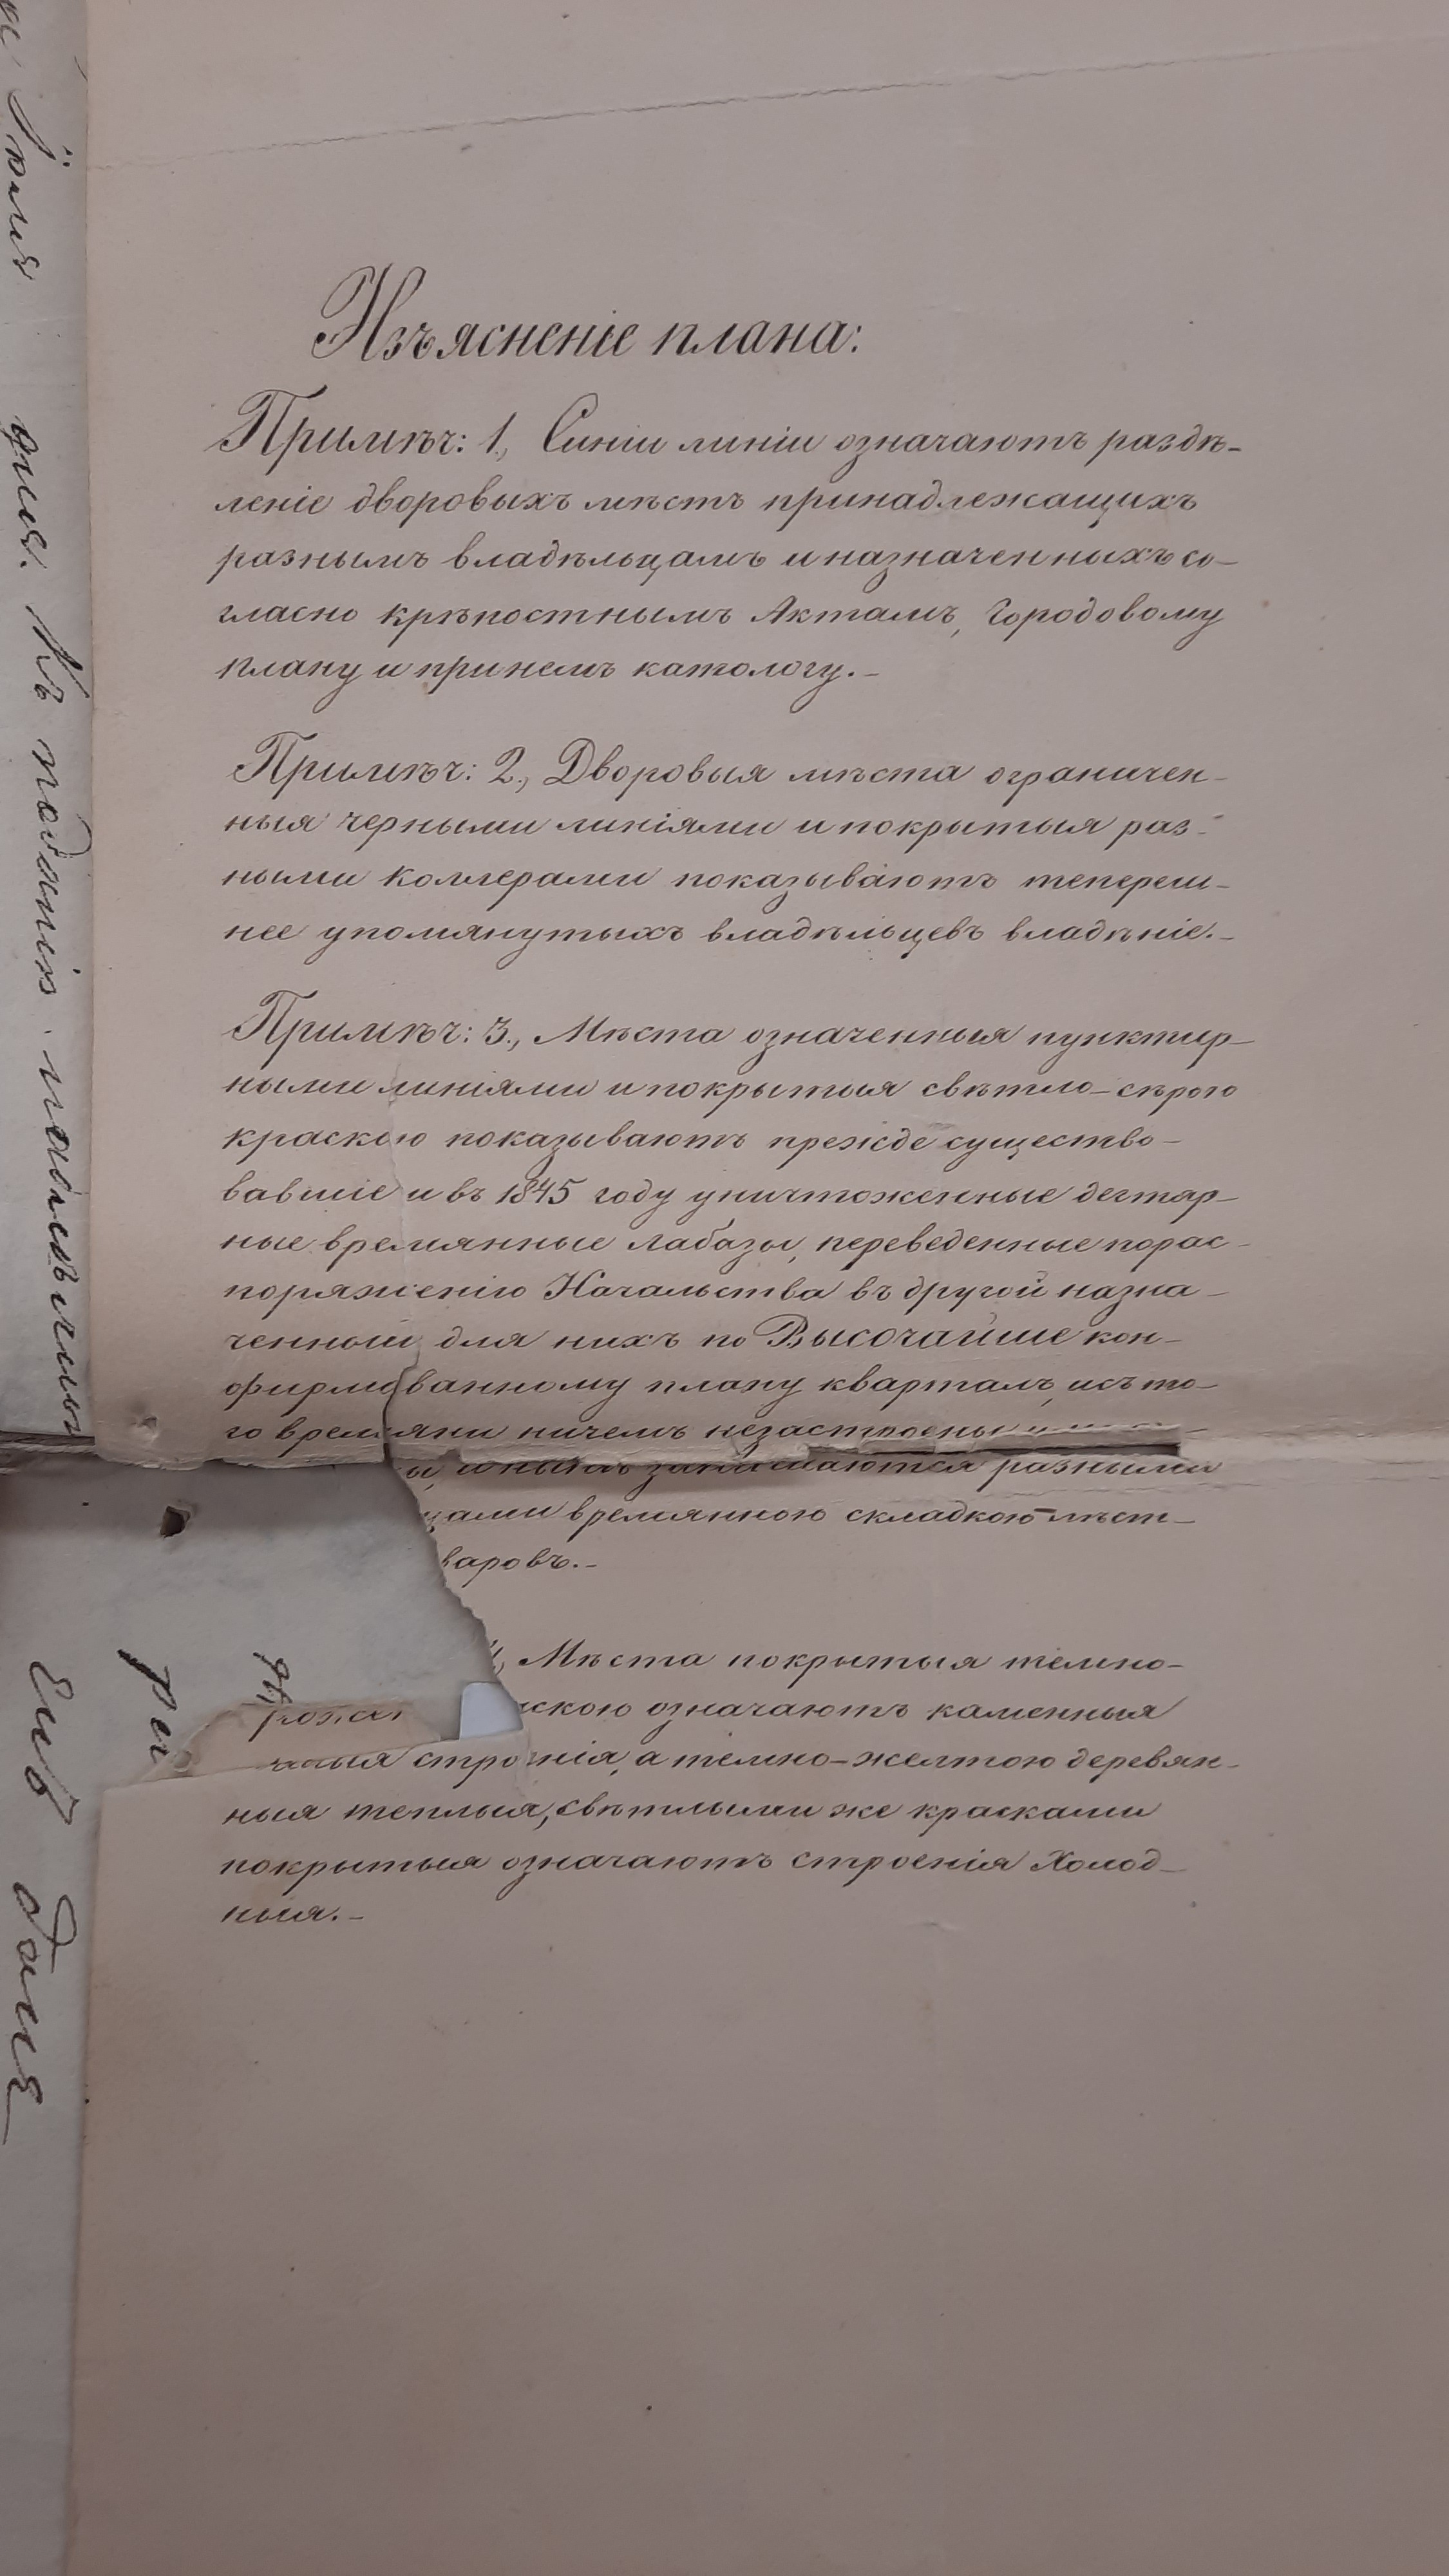 Изъясненіе плана:
Примѣч: 1., Синіи линіи означаютъ раздѣ-
леніе дворовыхъ мѣстъ принадлежащихъ
разнымъ владѣльцамъ и назначенныхъ со-
гласно крѣпостнымъ Актамъ, Городовому
плану и принемъ катологу.-
Примѣч: 2., Дворовыя мѣста ограничен-
ныя черными линіями и покрытыя раз-
ными коллерами показываютъ тепереш-
нее упомянутыхъ владѣльцевъ владѣніе.-
Примѣч: 3., Мѣста означенныя пунктир-
ными линіями и покрытыя свѣтло-сѣрою
краскою показываютъ прежде существо-
вавшіе и въ 1845 году уничтоженные дегтяр-
ные времянные лабазы, переведенные порас-
поряженію Начальства въ другой назна-
ченный для нихъ по Высочайше кон-
фирмованному плану кварталъ, исъ то-
го времяни ничемъ незастроены
разными
цами времянною складкою мѣст-
варовъ.-
Мѣста покрытыя темно-
скою означаютъ каменныя
строенія, а темно-желтою деревян-
ныя теплыя, свѣтлыми же красками
покрытыя означаютъ строенія Холод-
ныя.-
Іюля
дня. Къ подлинію
Его